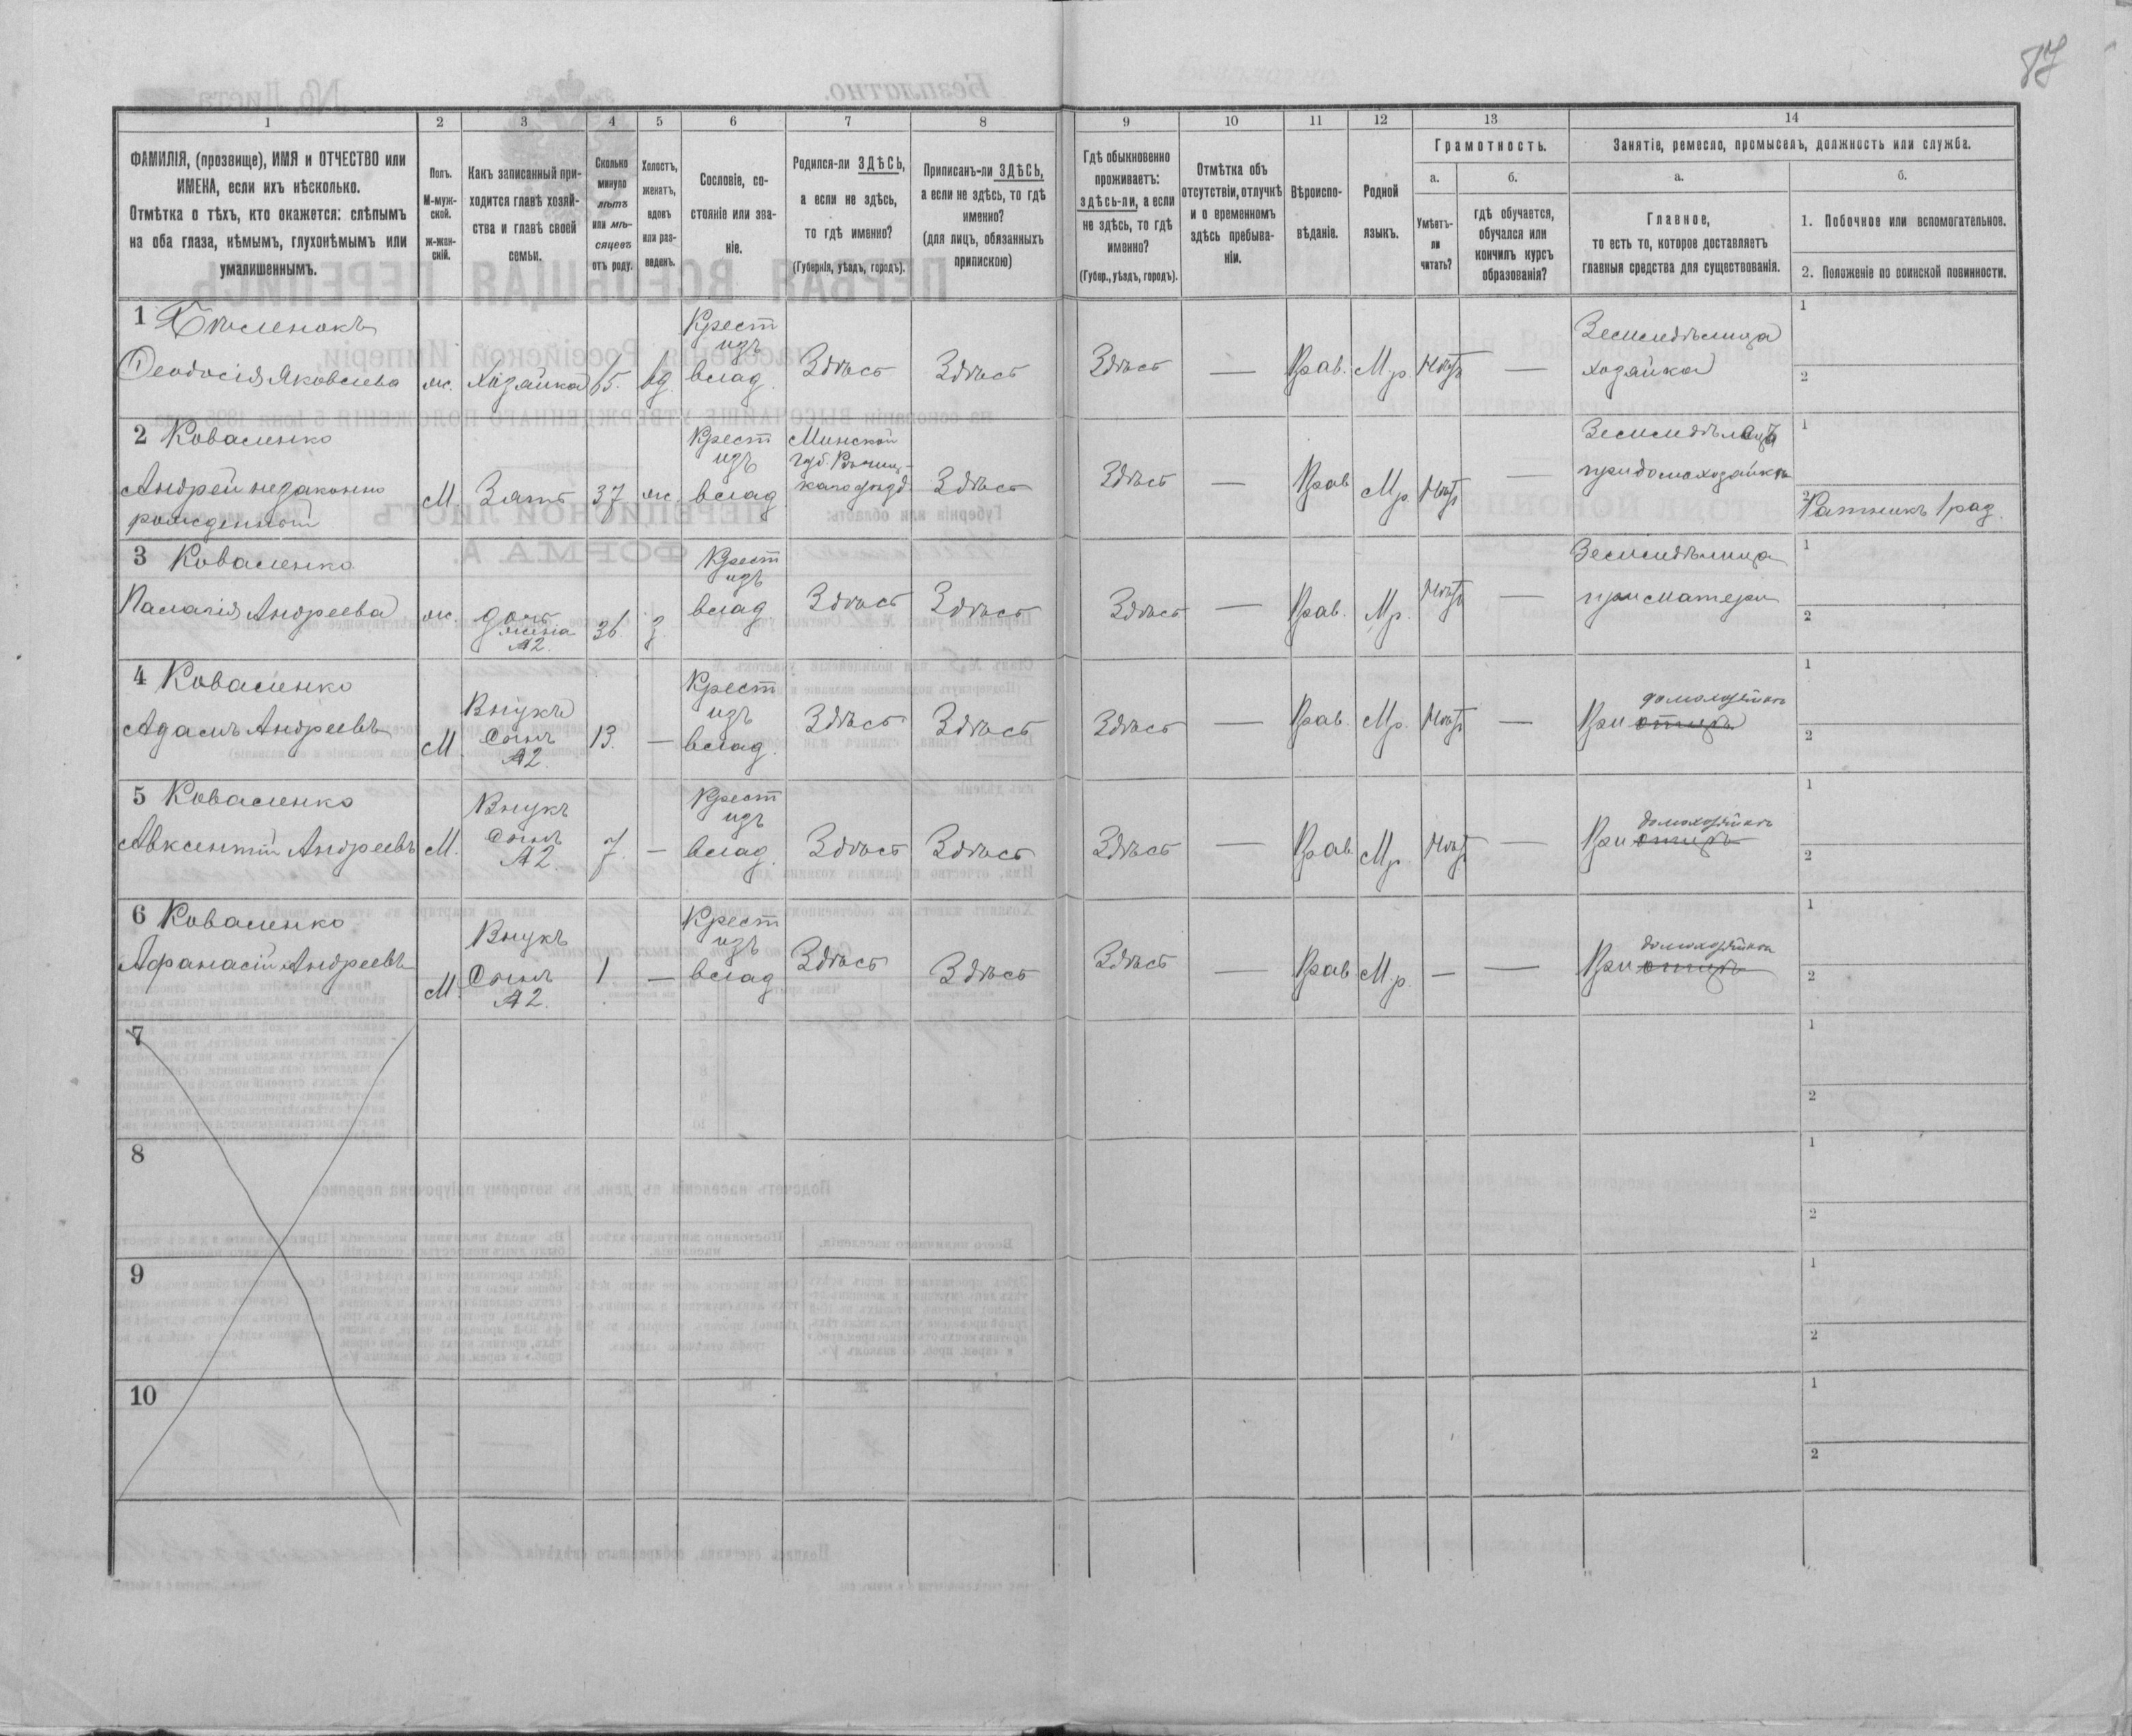 87
1 2 3 4 5 6 7 8 9 10 11 12 13 14
ФАМИЛІЯ, (прозвище), ИМЯ и ОТЧЕСТВО или
ИМЕНА, если ихъ нѣсколько.
Отмѣтка о тѣхъ, кто окажется: слѣпымъ
на оба глаза, нѣмымъ, глухонѣмымъ или
умалишеннымъ.
Полъ.
М-муж-
ской.
ж-жен-
скій.
Какъ записанный при-
ходится главѣ хозяй-
ства и главѣ своей
семьи.
Сколько
минуло
лѣтъ
или мѣ-
сяцевъ
отъ роду.
Холостъ,
женатъ,
вдовъ
или раз-
веденъ.
Сословіе, со-
стояніе или зва-
ніе.
Родился-ли ЗДѢСЬ,
а если не здѣсь,
то гдѣ именно?
(Губернія, уѣздъ, городъ).
Приписанъ-ли ЗДѢСЬ,
а если не здѣсь, то гдѣ
именно?
(для лицъ, обязанныхъ
припискою)
Гдѣ обыкновенно
проживаетъ:
здѣсь-ли, а если
не здѣсь, то гдѣ
именно?
(Губер., уѣздъ, городъ).
Отмѣтка объ
отсутствіи, отлучкѣ
и о временномъ
здѣсь пребыва-
ніи.
Вѣроиспо-
вѣданіе.
Родной
языкъ.
Грамотность.
а.
Умѣетъ-
ли
читать?
б.
гдѣ обучается,
обучался или
кончилъ курсъ
образованія?
Занятіе, ремесло, промыселъ, должность или служба.
а.
Главное,
то есть то, которое доставляетъ
главныя средства для существованія.
б.
1. Побочное или вспомогательное.
2. Положеніе по воинской повинности.
1
Ѳеодосія Яковлева
ж.
Хозяйка
65.
вд.
Крест
изъ
влад.
Здѣсь
Здѣсь
Здѣсь
—
Прав.
М.р.
Нѣтъ
—
Земледѣлица
хозяйка
1
2
2 Коваленко
Андрей незаконно
рожденный
М
Зять
37
ж.
Крест
изъ
влад
Минской
губ. Рѣчиц-
каго уѣзд.
Здѣсь
Здѣсь
—
Прав
М.р.
Нѣтъ
—
Земледѣлецъ
при домохозяйкѣ
1
2 Ратникъ 1 раз.
3 Коваленко
Палагія Андреева
ж.
дочь
жена
№2.
36.
з.
Крест
изъ
влад
Здѣсь
Здѣсь
Здѣсь
—
Прав.
М.р.
Нѣтъ
—
Земледѣлица
при матери
1
2
4 Коваленко
Адамъ Андреевъ
М.
Внукъ
Сынъ
№2.
13.
—
Крест
изъ
влад.
Здѣсь
Здѣсь
Здѣсь
—
Прав.
М.р.
Нѣтъ
—
домохозяйкѣ
При отцѣ
1
2
5 Коваленко
Авксентій Андреевъ
М.
Внукъ
Сынъ
№2.
7.
—
Крест
изъ
влад.
Здѣсь
Здѣсь
Здѣсь
—
Прав
М.р.
Нѣтъ
—
домохозяйкѣ
При
1
2
6 Коваленко
Афанасій Андреевъ
М.
Внукъ
Сынъ
№2.
1
—
Крест
изъ
влад
Здѣсь
Здѣсь
Здѣсь
—
Прав
М.р.
—
—
домохозяйкѣ
При
1
2
7
1
2
8
1
2
9
1
2
10
1
2